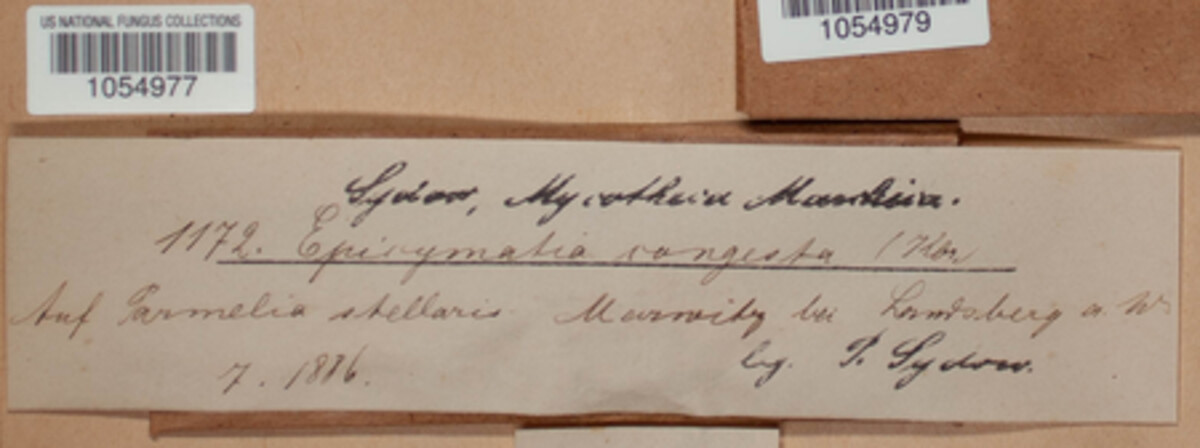 US NATIONAL FUNGUS COLLECTIONS
1054977
1054979
Sydow, Mycotheca Marchica.
1172. Epicymatia congesta (Kbr
Auf Parmelia stellaris. Marwitz bei Landsberg a. W.
7. 1886. leg. P. Sydow.